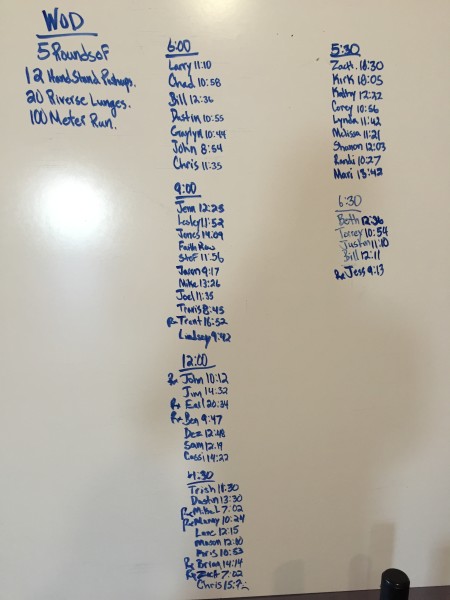 WOD
5 Rounds of
12 Hand Stand Pushups.
20 Riverse Lunges.
100 Meter Run.
6:00
Larry 11:10
Chad 10:58
Bill 12:36
Dustin 10:55
Graylyn 10:44
John 8:54
Chris 11:35
9:00
Jenn 12:25
Lesley 11:52
Jones 14:09
Faith Row
Stef 11:56
Jason 9:17
Mike 13:26
Joel 11:35
Travis 8:45
Rx Trent 16:52
Lindsay 9:42
12:00
Rx John 10:12
Jim 14:32
Rx Earl 20:34
Rx Ben 9:47
Dez 12:48
Sam 12:19
Cassi 14:22
4:30
Trish 18:30
Dustin 13:30
Rx Mike L 7:02
Rx Murray 10:24
Lane 12:15
Mason 12:00
Kris 10:53
Rx Brian 14:14
Rx Zack 7:02
Chris 15:?
5:30
Zach 18:30
Kirk 18:05
Kathy 12:22
Corey 10:56
Lynda 11:42
Melissa 11:21
Shannon 12:03
Randi 10:27
Mari 13:42
6:30
Beth 12:36
Torrey 10:54
Justin 11:10
Bill 12:11
Rx Jess 9:13